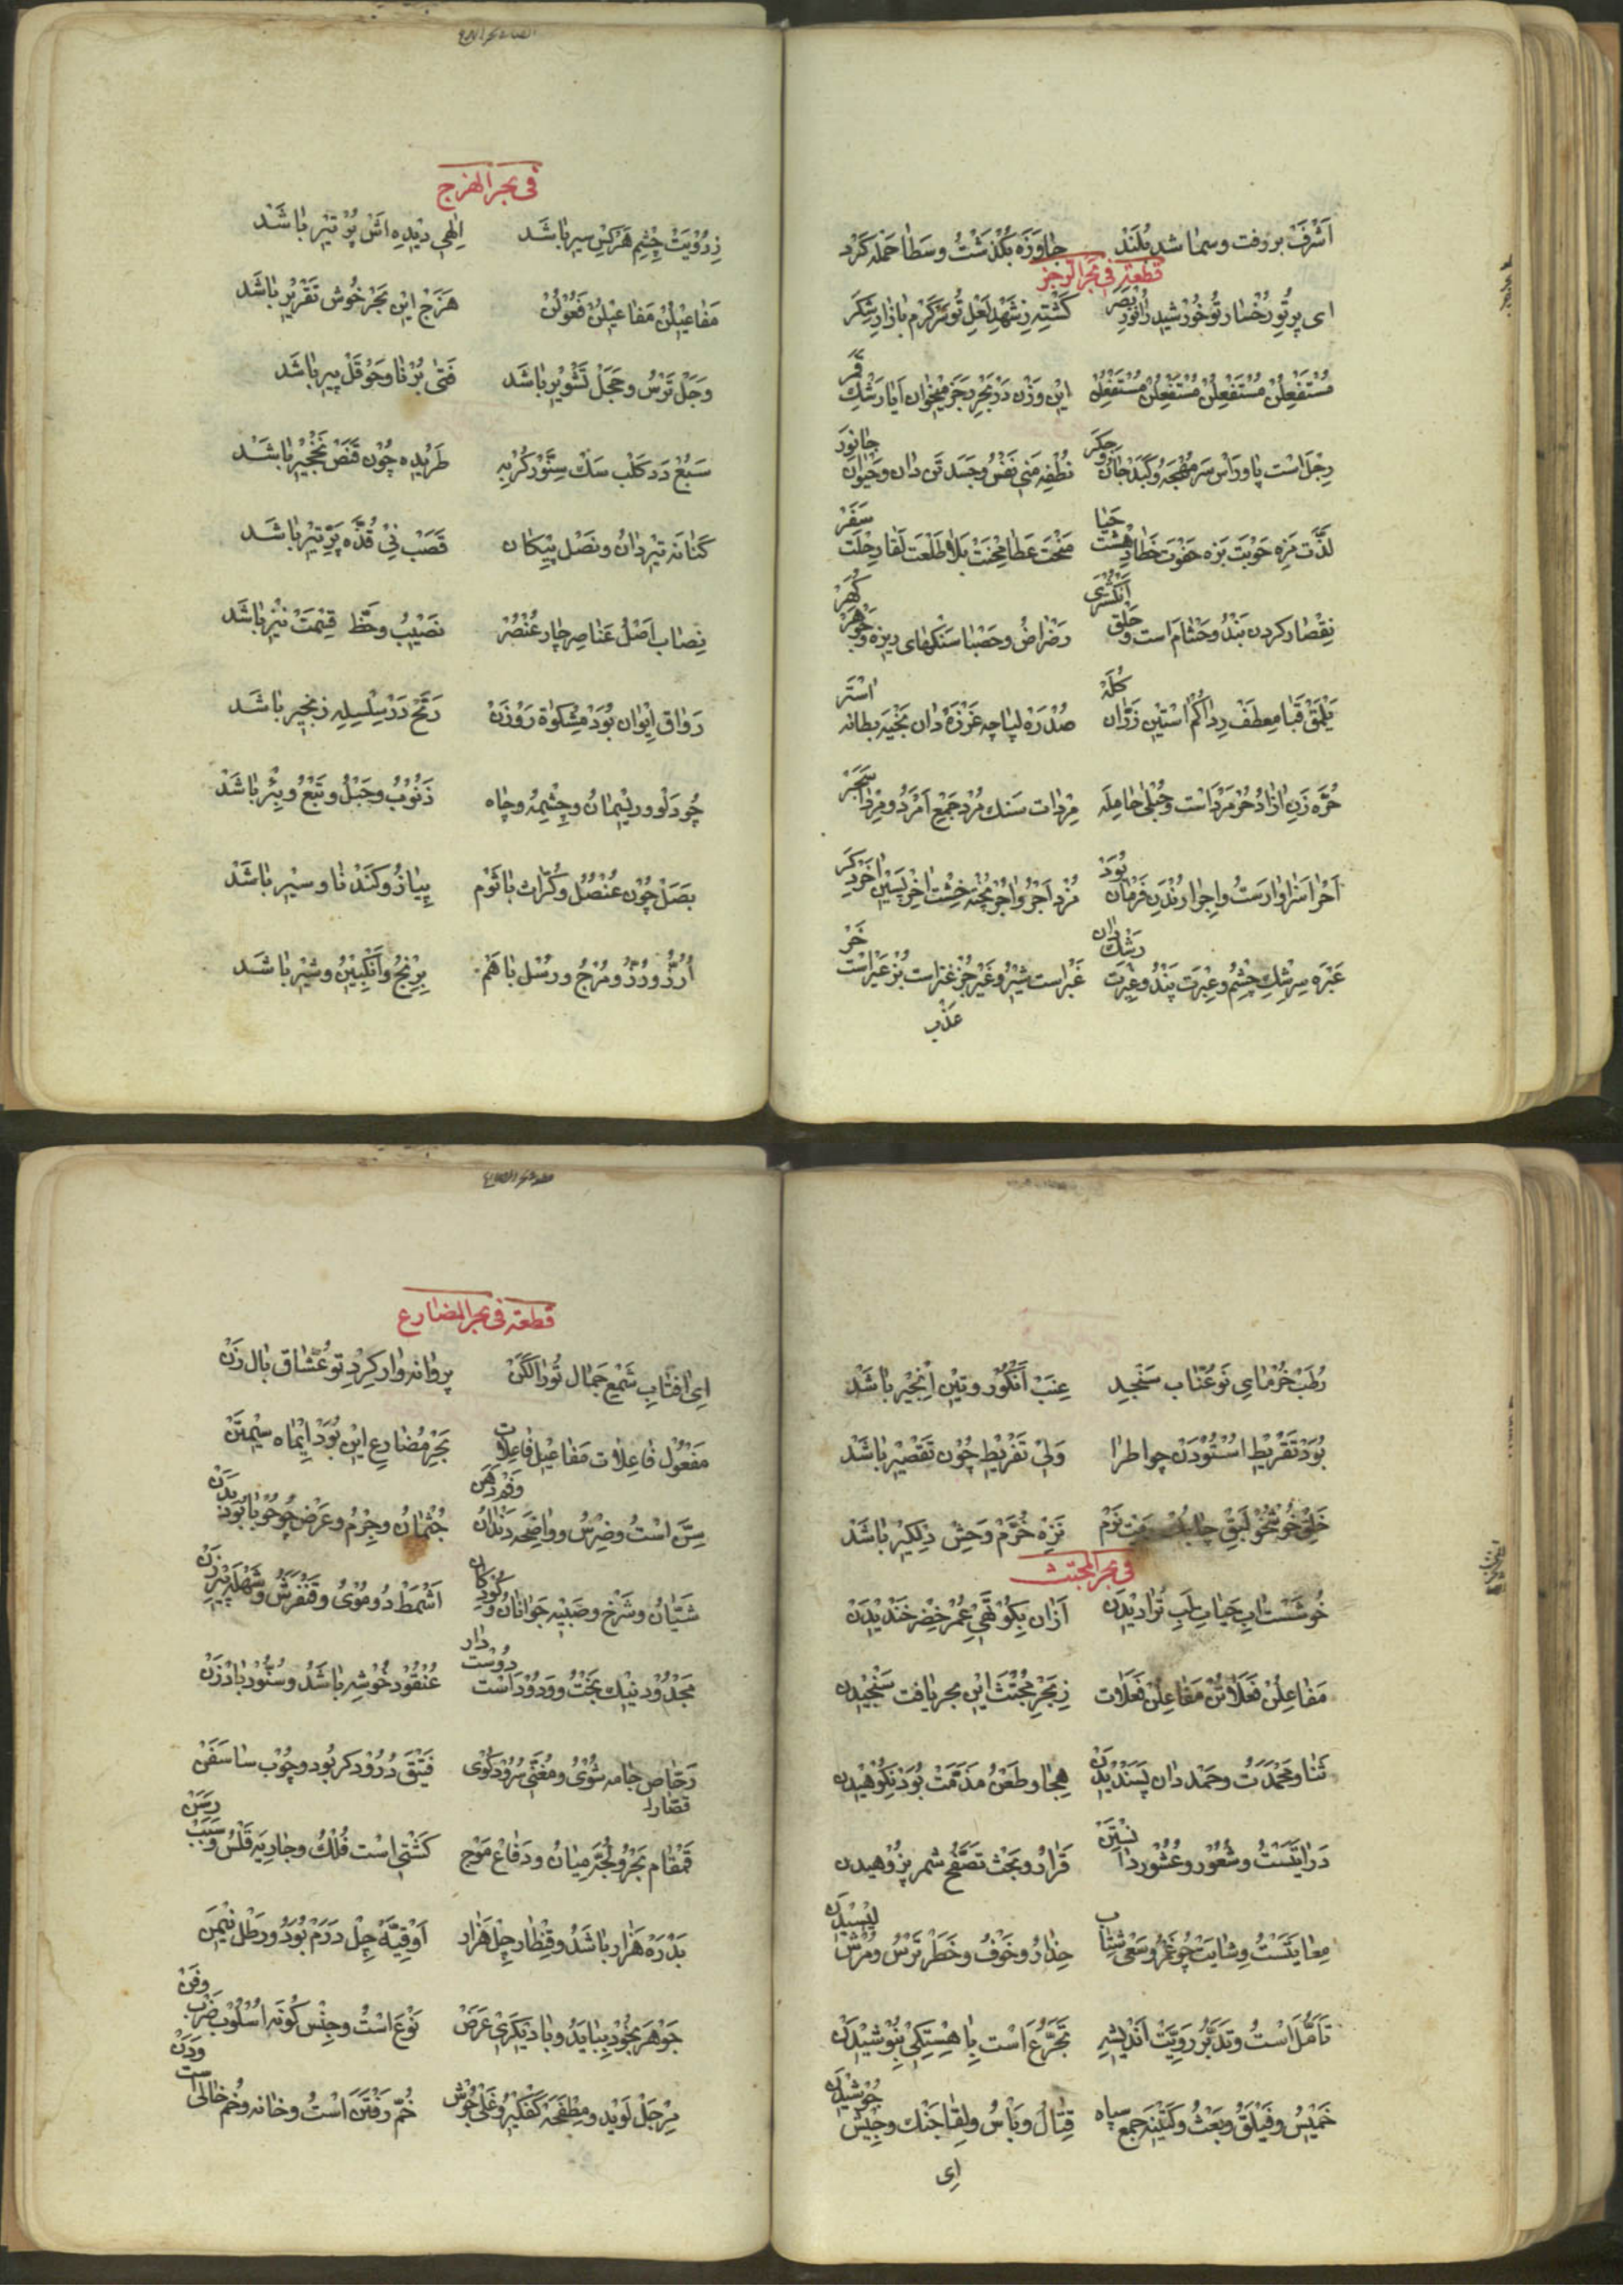 اَشْرَفَ بر رفت وسما شد بُلَند جاوَزَه بكُذشتُ وسَطا حَمله كَرْد
قطعه فى بحر الرجز
اى پرتوِ رُخسار تُو خُورشيد را نُورِ بَصَر كَشْته زِ شَهْدِ لَعْلِ تُو سَرْ كَرم بازار شكَر
مُسْتَفْعِلُنْ مُسْتَفْعِلُنْ مُسْتَفْعِلُنْ مُسْتَفْعِلُنْ اين وَزْن دَرْ بَحْرِ رَجَز ميخوان اَيا رَشْكِ قَمَر
رِجْل است پا و رَاْس سَر مُهْجَه وكَبد جان وجِكَر نُطْفه مَنى نَفْس وجَسَد تَن دان وحَيوان جانوَر
لَذَّت مَزه حَوبَت بَزه هفوت خَطا دهشت حَيا مِنْحَت عَطا مِحْنَت بَلا طَلعَت لَقا رِحلَت سَفَر
نقصار كردن بَنْد وختام است وحَلَق اَنكُشْترى رَضْراض وحَصْبا سَنكهاى ريزه وجَوْهَر كُهَر
يَلمَق قَبا مِعطَف رِدا كُم اَستين زرّ ان كُلَه صُدْرَه لباچه غَرْزَه دان بَخيَه بطانه اَستَر
حُرَّه زَنِ ازاد حُر مَرد است وحُبلى حامِلَه مِرْدات سَنك مُرد جَمعِ اَمْرَد ومِردا سَجَر
اَحْرا سَزاوارست واِجرا راندَنِ فَرمان بُوَد مُزد اَجْر واجُر پُخته خِشت اخِر پَسين اخَر دِكَر
عَبْرَه سِرشكِ چِشم وعِبرَت پَند وغيرت رَشك دان غَبْر است شير وغَير جُز عَنز است بُز عَير است خَر
عَذْب
فى بحر الهزج
زِ رُوْيَتْ چِشم هَركس سير باشَد اِلٰهى ديده اَش پُر تير باشَد
مَفاعيلُنْ مَفاعيلُنْ فَعُولُنْ هَزَجْ اين بَحْر خُوش تَقْرير باشَد
وَجَل تَرْس وخجَل تَشْوير باشَد فَتٰى بُرْنا وحَوْقَل پير باشَد
سَبُعْ دَد كَلب سَك سِنَّوْر كُرْبه طَريده چُون قَنَص نَخْجير باشَد
كَنانَه تيردان ونَصْل پيكان قَصَب نَىْ قُذَّه پَرِّ تير باشَد
نِصاب اَصْل عَناصِر چار عُنْصُر نَصيب وحَظّ قِسمَت نيز باشَد
رَواق اِيوان بُوَد مِشكوة رَوْزَن رَتَج دَر سِلْسِله زنجير باشَد
چُو دَلْو وريسمان وچشمه وچاه ذَنُوب وحَبْل ونَبْع وبِئْر باشَد
بَصَل چُون عُنْصُل وكُرّاث با ثَوْم پياز وكَنْدَنا وسير باشَد
اُرُزّ ودُوْدُ ومَزْج ورِسْل باهَم بِرِنج وانكبين وشير باشَد
رُطَب خُرماىِ نَو عُنّاب سَنجد عِنَب اَنكُور وتين اِنجير باشَد
بُوَد تَقْريط اُسْتُودَن چو اطرا وَلى تَفْريط چُون تَقْصير باشَد
خَلِق خُوشخُو لَبِق نَرْم نَزِه خُرَّم وَحِش دِلكير باشَد
فى بحر المجتث
خُوشَسْت ابِ حَياتِ لَبِ تُرا ديدَن اَزان نكوتَرى عُمْرِ خِضْر خَنديدَن
مَفاعِلُنْ فَعَلاتُنْ مَفاعِلُنْ فَعَلات زِ بَحْرِ مُجْتَث اين بحر يافت سَنجيدن
ثَنا ومَحْمَدَت وحَمْد دان پَسَنديدَن هِجا وطَعْن مَذَمَّت بُوَد نِكُوهيدن
دَرايَتَست وشُعُور وعُثُور دانستن قَرار وبَحْث تَصَفُّح شمر پژوهيدن
سِعايَتَست وِشايَت چُو غَمز وسَعى شتاب حِذار وخَوْف وخَطَر تَرْس ومَرْش ليسيدن
تَاَمُّلَ است وتَدَبُّر رَوِيَّت اَنديشه تَجَرُّع است باهستكى بِنوشيدن
خَميس وفَيْلَق وبَعْث وكَتيبَه جمع سپاه قِتال وبَاْس ولِقا جَنك وجَيْش جُوشيدن
اى
قطعه فى بحر المضارع
اى افتابِ شمع جَمال تُو را لَكَن پروانه وار كِردِ تو عُشّاق بال زَن
مَفْعُول فاعِلات مَفاعيل فاعِلات بَحْرِ مُضارع اين بُوَد ايماه سيمتَن
سِنّ است وضِرْس وواضِحه دندان وفَم دَهَن جُثْمان وجِرْم وعَرْض چو حَوْبا بُوَد بَدَن
شَبّان وشَرخ وصَبْيه جَوانان وكودكان اَشْمَط دو مُوى وقَنْفَرش وشَهْلَه پير زن
مَجْدُود نيك بَخت ووَدُود است دوست دار عُنْقُود خُوشه باشَد وسَنُّود بادزَن
رَحّاص جامه شُوى ومُغَنّى سُرُود كَوى فَيْتَق دُرُودكر بُود وچُوب ساسَفَن
قصّار ا
قَمْقام بَحْر ولُجّه ميان ودَفاع مَوْج كَشتى است فُلْك وجاريه قَلس وسَبَب رَسَن
بَدْرَه هَزار باشَد وقِنطار چِل هَزار اُوقِيَّه چِل دَرَم بُوَد ورطل نيم مَن
جَوْهَر بخُود بپايَد وبا ديكَرى عَرَض نَوْع است وجِنس كُونَه اُسْلُوب ضَرب وفَن
مِرجَل لَويد ومِطْفَحَه كَفكير وغَلى جُوش خُمّ رَفتَن است وخانه وخُم خالى است ودَن